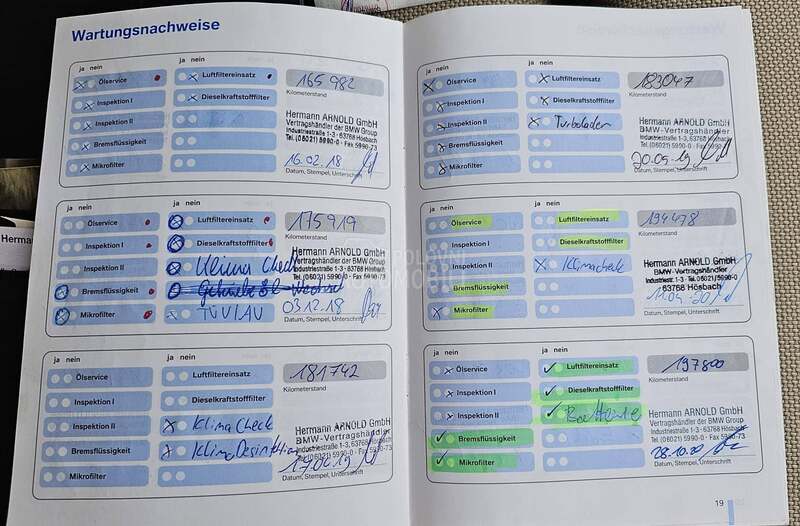 Wartungsnachweise
ja nein
ja nein
Ölservice
Luftfiltereinsatz
165 982
Inspektion I
Dieselkraftstofffilter
Kilometerstand
Inspektion II
Hermann ARNOLD GmbH
Vertragshändler der BMW Group
Industriestraße 1-3 · 63768 Hösbach
Tel. (06021) 5990-0 · Fax 5990-73
Bremsflüssigkeit
Mikrofilter
16.02.18
Datum, Stempel, Unterschrift
ja nein
ja nein
Ölservice
Luftfiltereinsatz
175919
Inspektion I
Dieselkraftstofffilter
Kilometerstand
Inspektion II
Klima Check
Hermann ARNOLD GmbH
Vertragshändler der BMW Group
Industriestraße 1-3 · 63768 Hösbach
Tel. (06021) 5990-0 · Fax 5990-73
Bremsflüssigkeit
Mikrofilter
TÜV/AU
03.12.18
Datum, Stempel, Unterschrift
ja nein
ja nein
Ölservice
Luftfiltereinsatz
181742
Inspektion I
Dieselkraftstofffilter
Kilometerstand
Inspektion II
Klima Check
Hermann ARNOLD GmbH
BMW-Vertragshändler
Industriestraße 1-3, 63768 Hösbach
Tel. (06021) 5990-0 · Fax 5990-73
Bremsflüssigkeit
Mikrofilter
17.06.19
Datum, Stempel, Unterschrift
ja nein
ja nein
Ölservice
Luftfiltereinsatz
183047
Inspektion I
Dieselkraftstofffilter
Kilometerstand
Inspektion II
Turbolader
Hermann ARNOLD GmbH
BMW-Vertragshändler
Industriestraße 1-3 · 63768 Hösbach
Tel. (06021) 5990-0 · Fax 5990-73
Bremsflüssigkeit
Mikrofilter
20.09.19
Datum, Stempel, Unterschrift
ja nein
ja nein
Ölservice
Luftfiltereinsatz
194478
Inspektion I
Dieselkraftstofffilter
Kilometerstand
Inspektion II
Klimacheck
Hermann ARNOLD GmbH
BMW-Vertragshändler
63768 Hösbach
Bremsflüssigkeit
Mikrofilter
Datum, Stempel, Unterschrift
ja nein
ja nein
Ölservice
Luftfiltereinsatz
197800
Inspektion I
Dieselkraftstofffilter
Kilometerstand
Inspektion II
Hermann ARNOLD GmbH
BMW-Vertragshändler
Industriestraße 1-3 · 63768 Hösbach
Tel. (06021) 5990-0 · Fax 5990-73
Bremsflüssigkeit
Mikrofilter
28.10.20
Datum, Stempel, Unterschrift
19